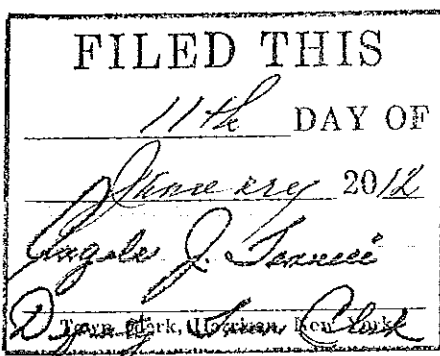 FILED THIS
11th DAY OF
January 2012
J.
Deputy Town Clerk
Town Clerk, Harrison, New York